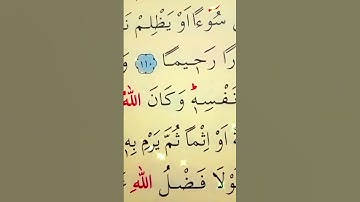 سُٓوءًا اَوْ يَظْلِمْ
رًا رَح۪يمًا ﴿١١٠﴾ وَ
نَفْسِه۪ۜ وَكَانَ اللّٰهُ
اَوْ اِثْمًا ثُمَّ يَرْمِ بِه۪
وْلَا فَضْلُ اللّٰهِ